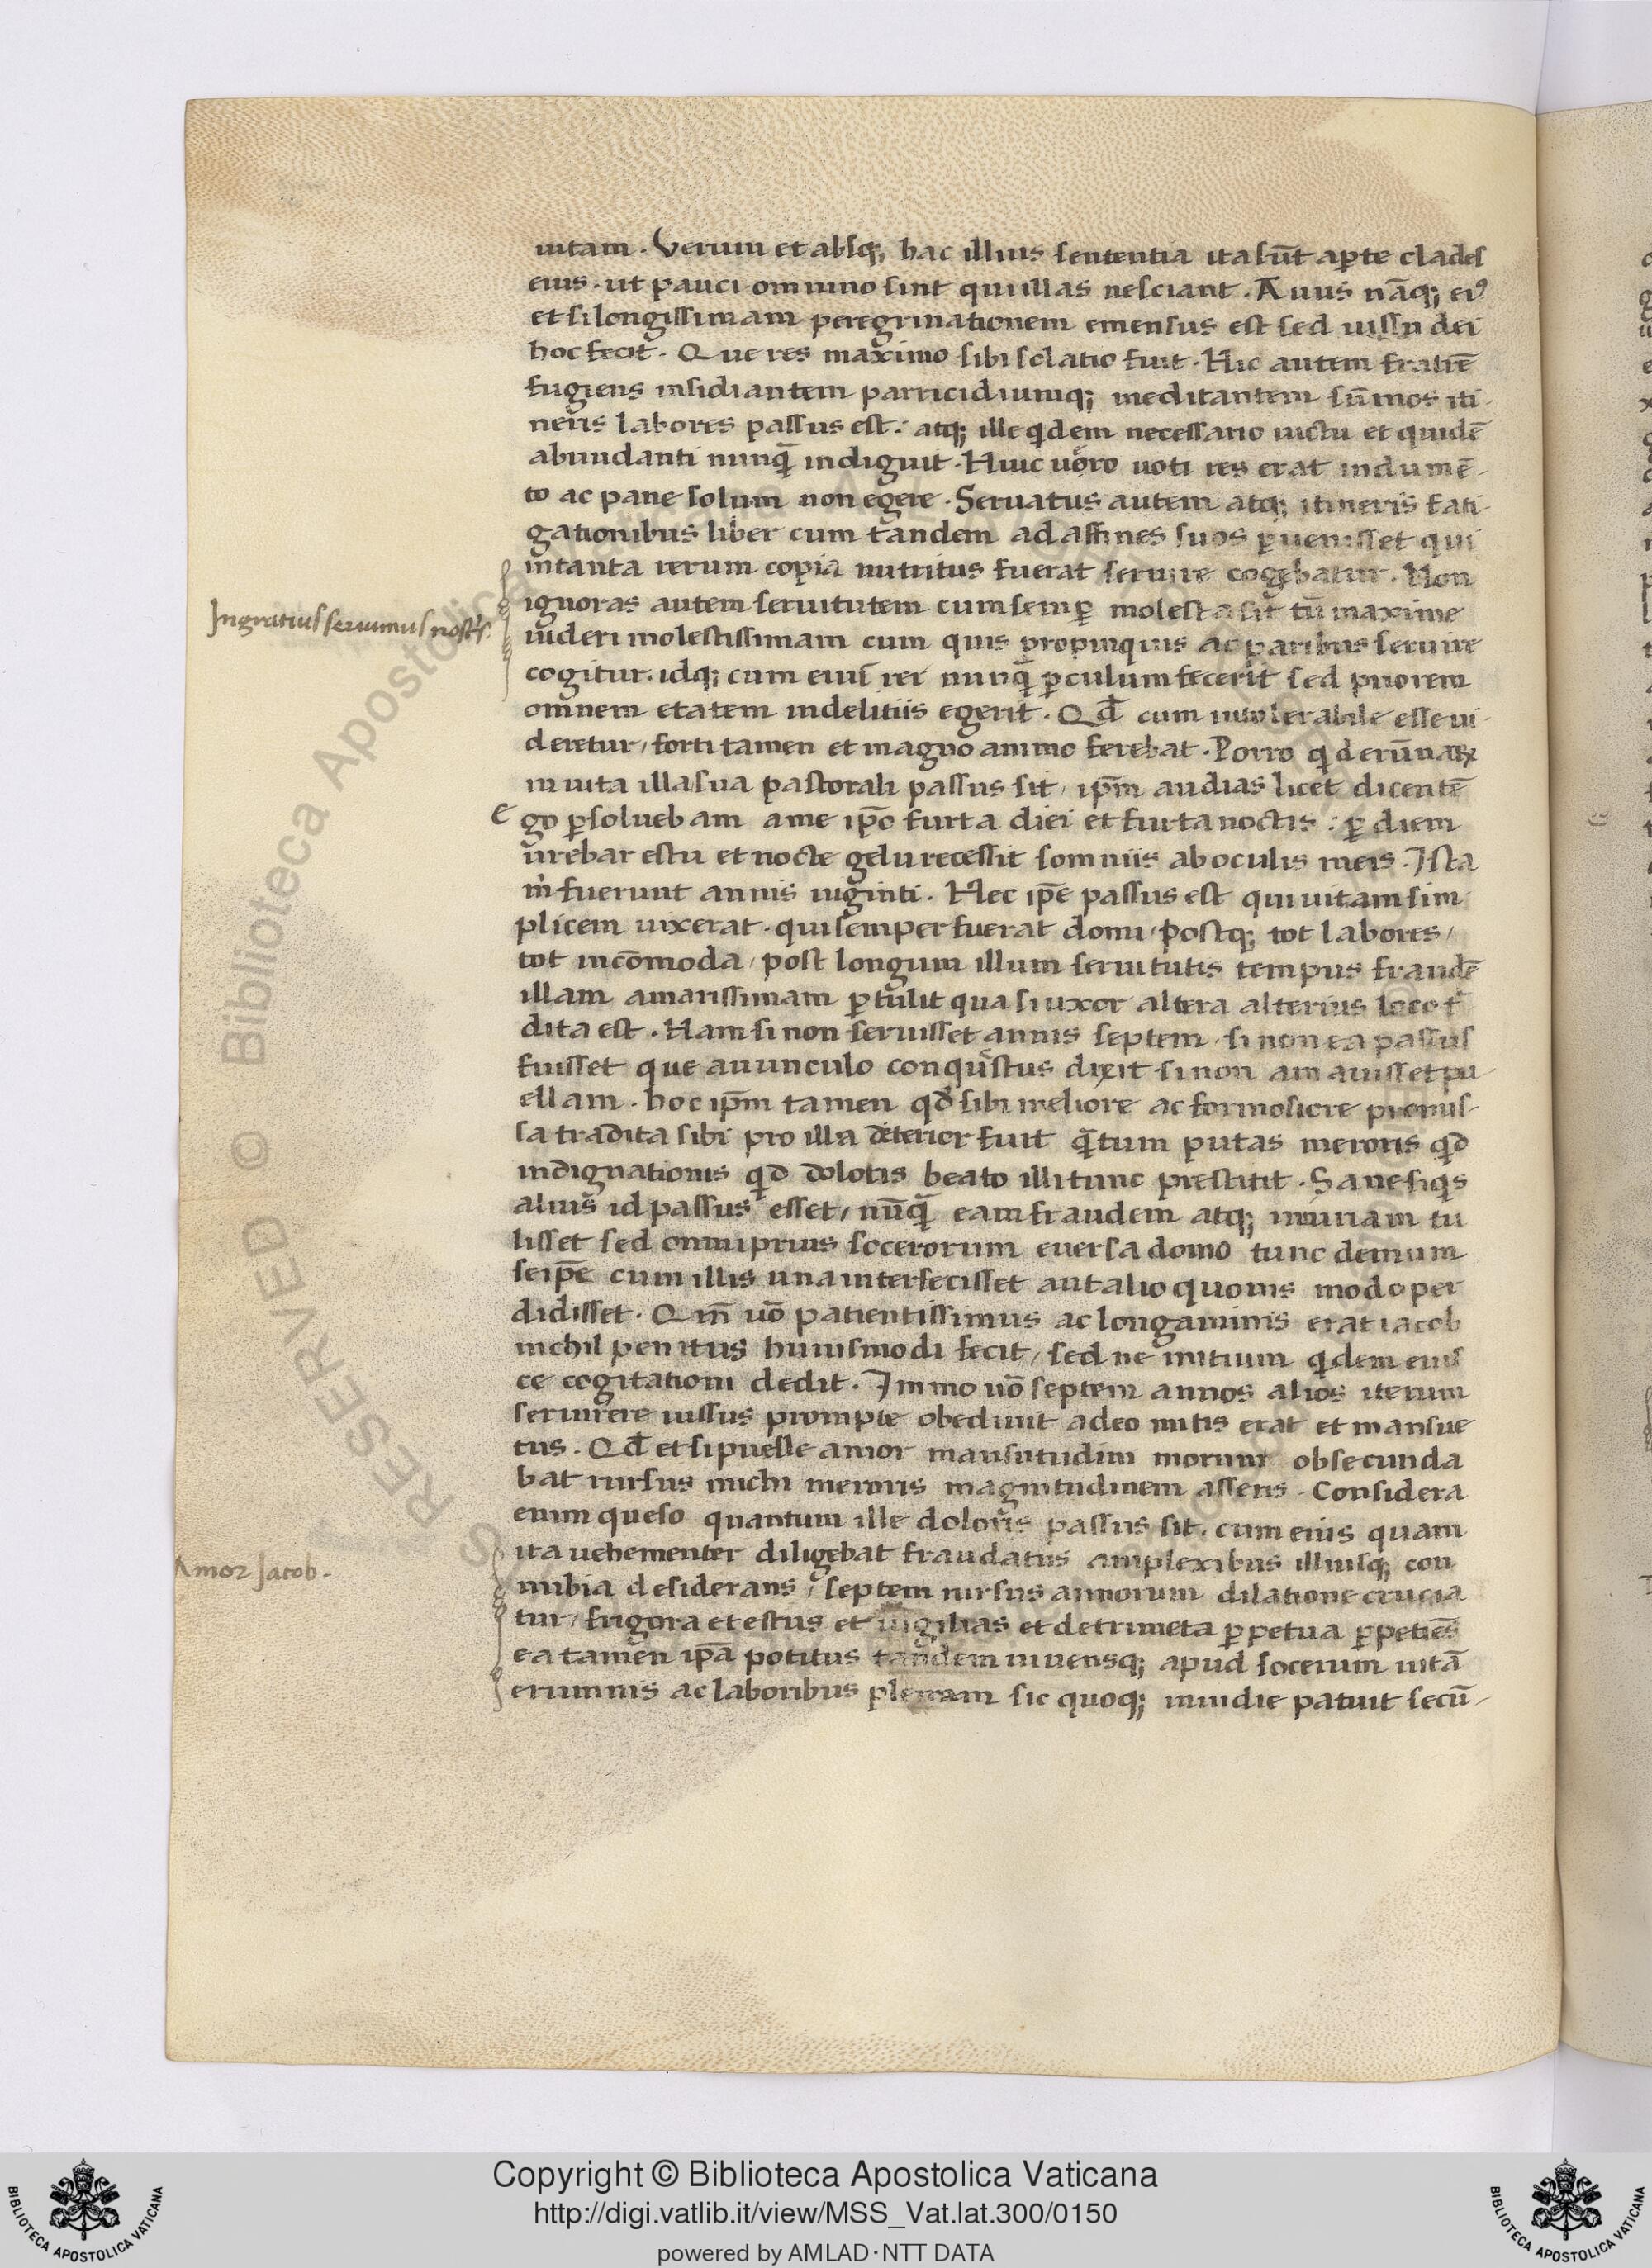 uitam. Verum et absq; hac illius sententia ita sūt aꝑte clades
eius. ut pauci omnino sint qui illas nesciant. Auus nāq; eiꝰ
et si longissimam peregrinationem emensus est sed iussu dei
hoc fecit. Que res maximo sibi solatio fuit. Hic autem fratrē
fugiens insidiantem parricidiumq; meditantem sūmos iti-
neris labores passus est. atq; ille qdem necessario uictu et quidē
abundanti nunq̄ indiguit. Huic uero uoti res erat indumē-
to ac pane solum non egere. Seruatus autem atq; itineris fati-
gationibus liber cum tandem ad affines suos ꝑuenisset qui
in tanta rerum copia nutritus fuerat seruire cogebatur. Non
ignoras autem seruitutem cum semꝑ molesta sit tū maxime
Ingratius seruimus nostris.
uideri molestissimam cum quis propinquis ac paribus seruire
cogitur. idq; cum eius rei nunq̄ ꝑculum fecerit sed priorem
omnem etatem in delitiis egerit. Qđ cum intolerabile esse ui-
deretur, forti tamen et magno animo ferebat. Porro qd erūnaꝝ
in uita illa sua pastorali passus sit, ip̄m audias licet dicentē
ego ꝑsoluebam a me ip̄o furta diei et furta noctis: ꝑ diem
urebar estu et nocte gelu recessit somniis ab oculis meis. Ista
m̊ fuerunt annis uiginti. Hec ip̄e passus est qui uitam sim
plicem uixerat. qui semper fuerat domi, postq; tot labores,
tot incōmoda, post longum illum seruitutis tempus fraudē
illam amarissimam ꝑtulit qua si uxor altera alterius loco t̄
dita est. Nam si non seruisset annis septem, si non ea passus
fuisset que auunculo conqustus dixit. si non amauisset pu-
ellam. hoc ip̄m tamen qđ sibi meliore ac formosiore promis-
sa tradita sibi pro illa deterior fuit q̄tum putas meroris qd
indignationis qd doloris beato illi tunc prestitit. Sane siqs
alius id passus esset, nūq̄ eam fraudem atq; iniuriam tu
lisset sed omni prius socerorum euersa domo tunc demum
seip̄e cum illis una interfecisset aut alio quouis modo per
didisset. Qm̄ uō patientissimus ac longaminis erat iacob
nichil penitus huiusmodi fecit, sed ne initium qdem eius
ce cogitationi dedit. Immo uō septem annos alios iterum
seruirere iussus prompte obediuit adeo mitis erat et mansue
tus. Qđ et si puelle amor mansutudini morum obsecunda
bat rursus michi meroris magnitudinem asseris. Considera
enim queso quantum ille doloris passus sit. cum eius quam
ita uehementer diligebat fraudatus amplexibus illiusq; con
Amor Jacob.
nubia desiderans, septem rursus annorum dilatione crucia
tur, frigora et estus et uigilias et detrimeta ꝑpetua ꝑpetiēs
ea tamen ip̄a potitus tandem iniuensq; apud socerum uitā
erumnis ac laboribus plenam sic quoq; inuidie patuit secū-
Copyright © Biblioteca Apostolica Vaticana
http://digi.vatlib.it/view/MSS_Vat.lat.300/0150
powered by AMLAD·NTT DATA
BIBLIOTECA APOSTOLICA VATICANA
BIBLIOTECA APOSTOLICA VATICANA